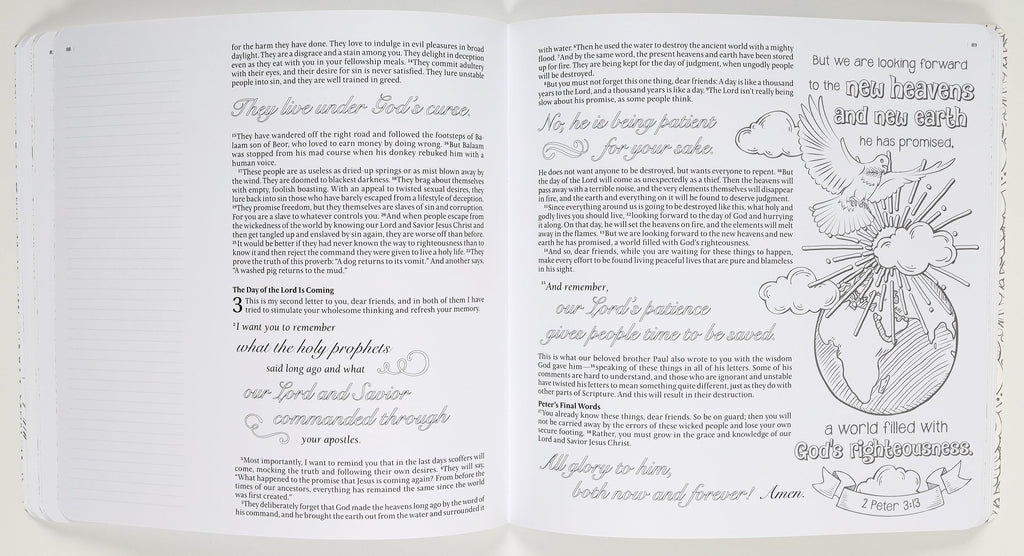 88
for the harm they have done. They love to indulge in evil pleasures in broad
daylight. They are a disgrace and a stain among you. They delight in deception
even as they eat with you in your fellowship meals. ¹⁴They commit adultery
with their eyes, and their desire for sin is never satisfied. They lure unstable
people into sin, and they are well trained in greed.
They live under God's curse.
¹⁵They have wandered off the right road and followed the footsteps of Ba-
laam son of Beor, who loved to earn money by doing wrong. ¹⁶But Balaam
was stopped from his mad course when his donkey rebuked him with a
human voice.
¹⁷These people are as useless as dried-up springs or as mist blown away by
the wind. They are doomed to blackest darkness. ¹⁸They brag about themselves
with empty, foolish boasting. With an appeal to twisted sexual desires, they
lure back into sin those who have barely escaped from a lifestyle of deception.
¹⁹They promise freedom, but they themselves are slaves of sin and corruption.
For you are a slave to whatever controls you. ²⁰And when people escape from
the wickedness of the world by knowing our Lord and Savior Jesus Christ and
then get tangled up and enslaved by sin again, they are worse off than before.
²¹It would be better if they had never known the way to righteousness than to
know it and then reject the command they were given to live a holy life. ²²They
prove the truth of this proverb: "A dog returns to its vomit." And another says,
"A washed pig returns to the mud."
The Day of the Lord Is Coming
3 This is my second letter to you, dear friends, and in both of them I have
tried to stimulate your wholesome thinking and refresh your memory.
²I want you to remember
what the holy prophets
said long ago and what
our Lord and Savior
commanded through
your apostles.
³Most importantly, I want to remind you that in the last days scoffers will
come, mocking the truth and following their own desires. ⁴They will say,
"What happened to the promise that Jesus is coming again? From before the
times of our ancestors, everything has remained the same since the world
was first created."
⁵They deliberately forget that God made the heavens long ago by the word of
his command, and he brought the earth out from the water and surrounded it
89
with water. ⁶Then he used the water to destroy the ancient world with a mighty
flood. ⁷And by the same word, the present heavens and earth have been stored
up for fire. They are being kept for the day of judgment, when ungodly people
will be destroyed.
⁸But you must not forget this one thing, dear friends: A day is like a thousand
years to the Lord, and a thousand years is like a day. ⁹The Lord isn't really being
slow about his promise, as some people think.
No, he is being patient
for your sake.
He does not want anyone to be destroyed, but wants everyone to repent. ¹⁰But
the day of the Lord will come as unexpectedly as a thief. Then the heavens will
pass away with a terrible noise, and the very elements themselves will disappear
in fire, and the earth and everything on it will be found to deserve judgment.
¹¹Since everything around us is going to be destroyed like this, what holy and
godly lives you should live, ¹²looking forward to the day of God and hurrying
it along. On that day, he will set the heavens on fire, and the elements will melt
away in the flames. ¹³But we are looking forward to the new heavens and new
earth he has promised, a world filled with God's righteousness.
¹⁴And so, dear friends, while you are waiting for these things to happen,
make every effort to be found living peaceful lives that are pure and blameless
in his sight.
¹⁵And remember,
our Lord's patience
gives people time to be saved.
This is what our beloved brother Paul also wrote to you with the wisdom
God gave him—¹⁶speaking of these things in all of his letters. Some of his
comments are hard to understand, and those who are ignorant and unstable
have twisted his letters to mean something quite different, just as they do with
other parts of Scripture. And this will result in their destruction.
Peter's Final Words
¹⁷You already know these things, dear friends. So be on guard; then you will
not be carried away by the errors of these wicked people and lose your own
secure footing. ¹⁸Rather, you must grow in the grace and knowledge of our
Lord and Savior Jesus Christ.
All glory to him,
both now and forever! Amen.
But we are looking forward
to the new heavens
and new earth
he has promised,
a world filled with
God's righteousness.
2 Peter 3:13